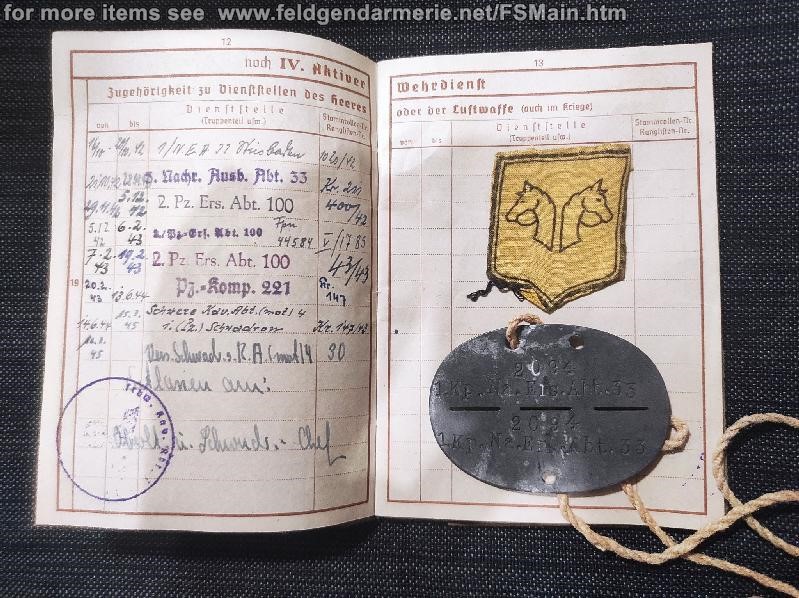 for more items see www.feldgendarmerie.net/FSMain.htm
12
noch IV. Aktiver
Zugehörigkeit zu Dienststellen des Heeres
von
bis
Dienststelle
(Truppenteil usw.)
Stammrollen-Nr.
Ranglisten-Nr.
1020/42
3. Nachr. Ausb. Abt. 33
Kr. 211
5.12. 42
2. Pz. Ers. Abt. 100
400/42
5.12. 42
6.2. 43
2./Pz.-Ers. Abt. 100
Fpn 44584
V/1785
7.2. 43
19.2. 43
2. Pz. Ers. Abt. 100
43/43
19
20.2. 43
13.6.44
Pz.-Komp. 221
Kr. 147
14.6.44
45
Schwere Kav. Abt. (mot) 4
1. (Pz.) Schwadron
Kr. 147/43
45
K. A. (mot) 4
30
Chef
13
Wehrdienst
oder der Luftwaffe (auch im Kriege)
von
bis
Dienststelle
(Truppenteil usw.)
Stammrollen-Nr.
Ranglisten-Nr.
2094
1.Kp.Na.Ers.Abt.33
2094
1.Kp.Na.Ers.Abt.33